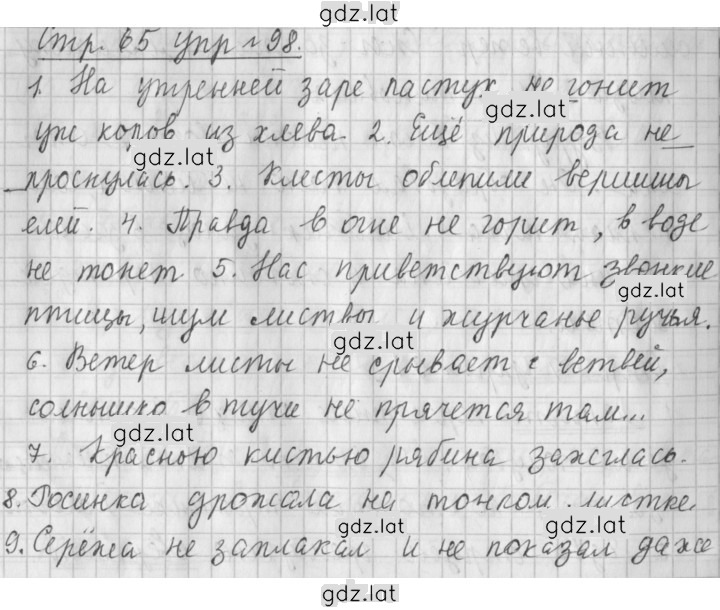 gdz.lat
Стр. 65 упр № 98.
1. На утренней заре пастух не гонит
gdz.lat
уж коров из хлева. 2. Ещё природа не
gdz.lat
проснулась. 3. Клесты облепили вершины
елей. 4. Правда в огне не горит, в воде
не тонет 5. Нас приветствуют звонкие
gdz.lat
птицы, шум листвы и журчанье ручья.
gdz.lat
6. Ветер листы не срывает с ветвей,
солнышко в тучи не прячется там...
gdz.lat
7. Красною кистью рябина зажглась.
8. Росинка дрожала на тонком листке.
gdz.lat gdz.lat
9. Серёжа не заплакал и не показал даже
gdz.lat